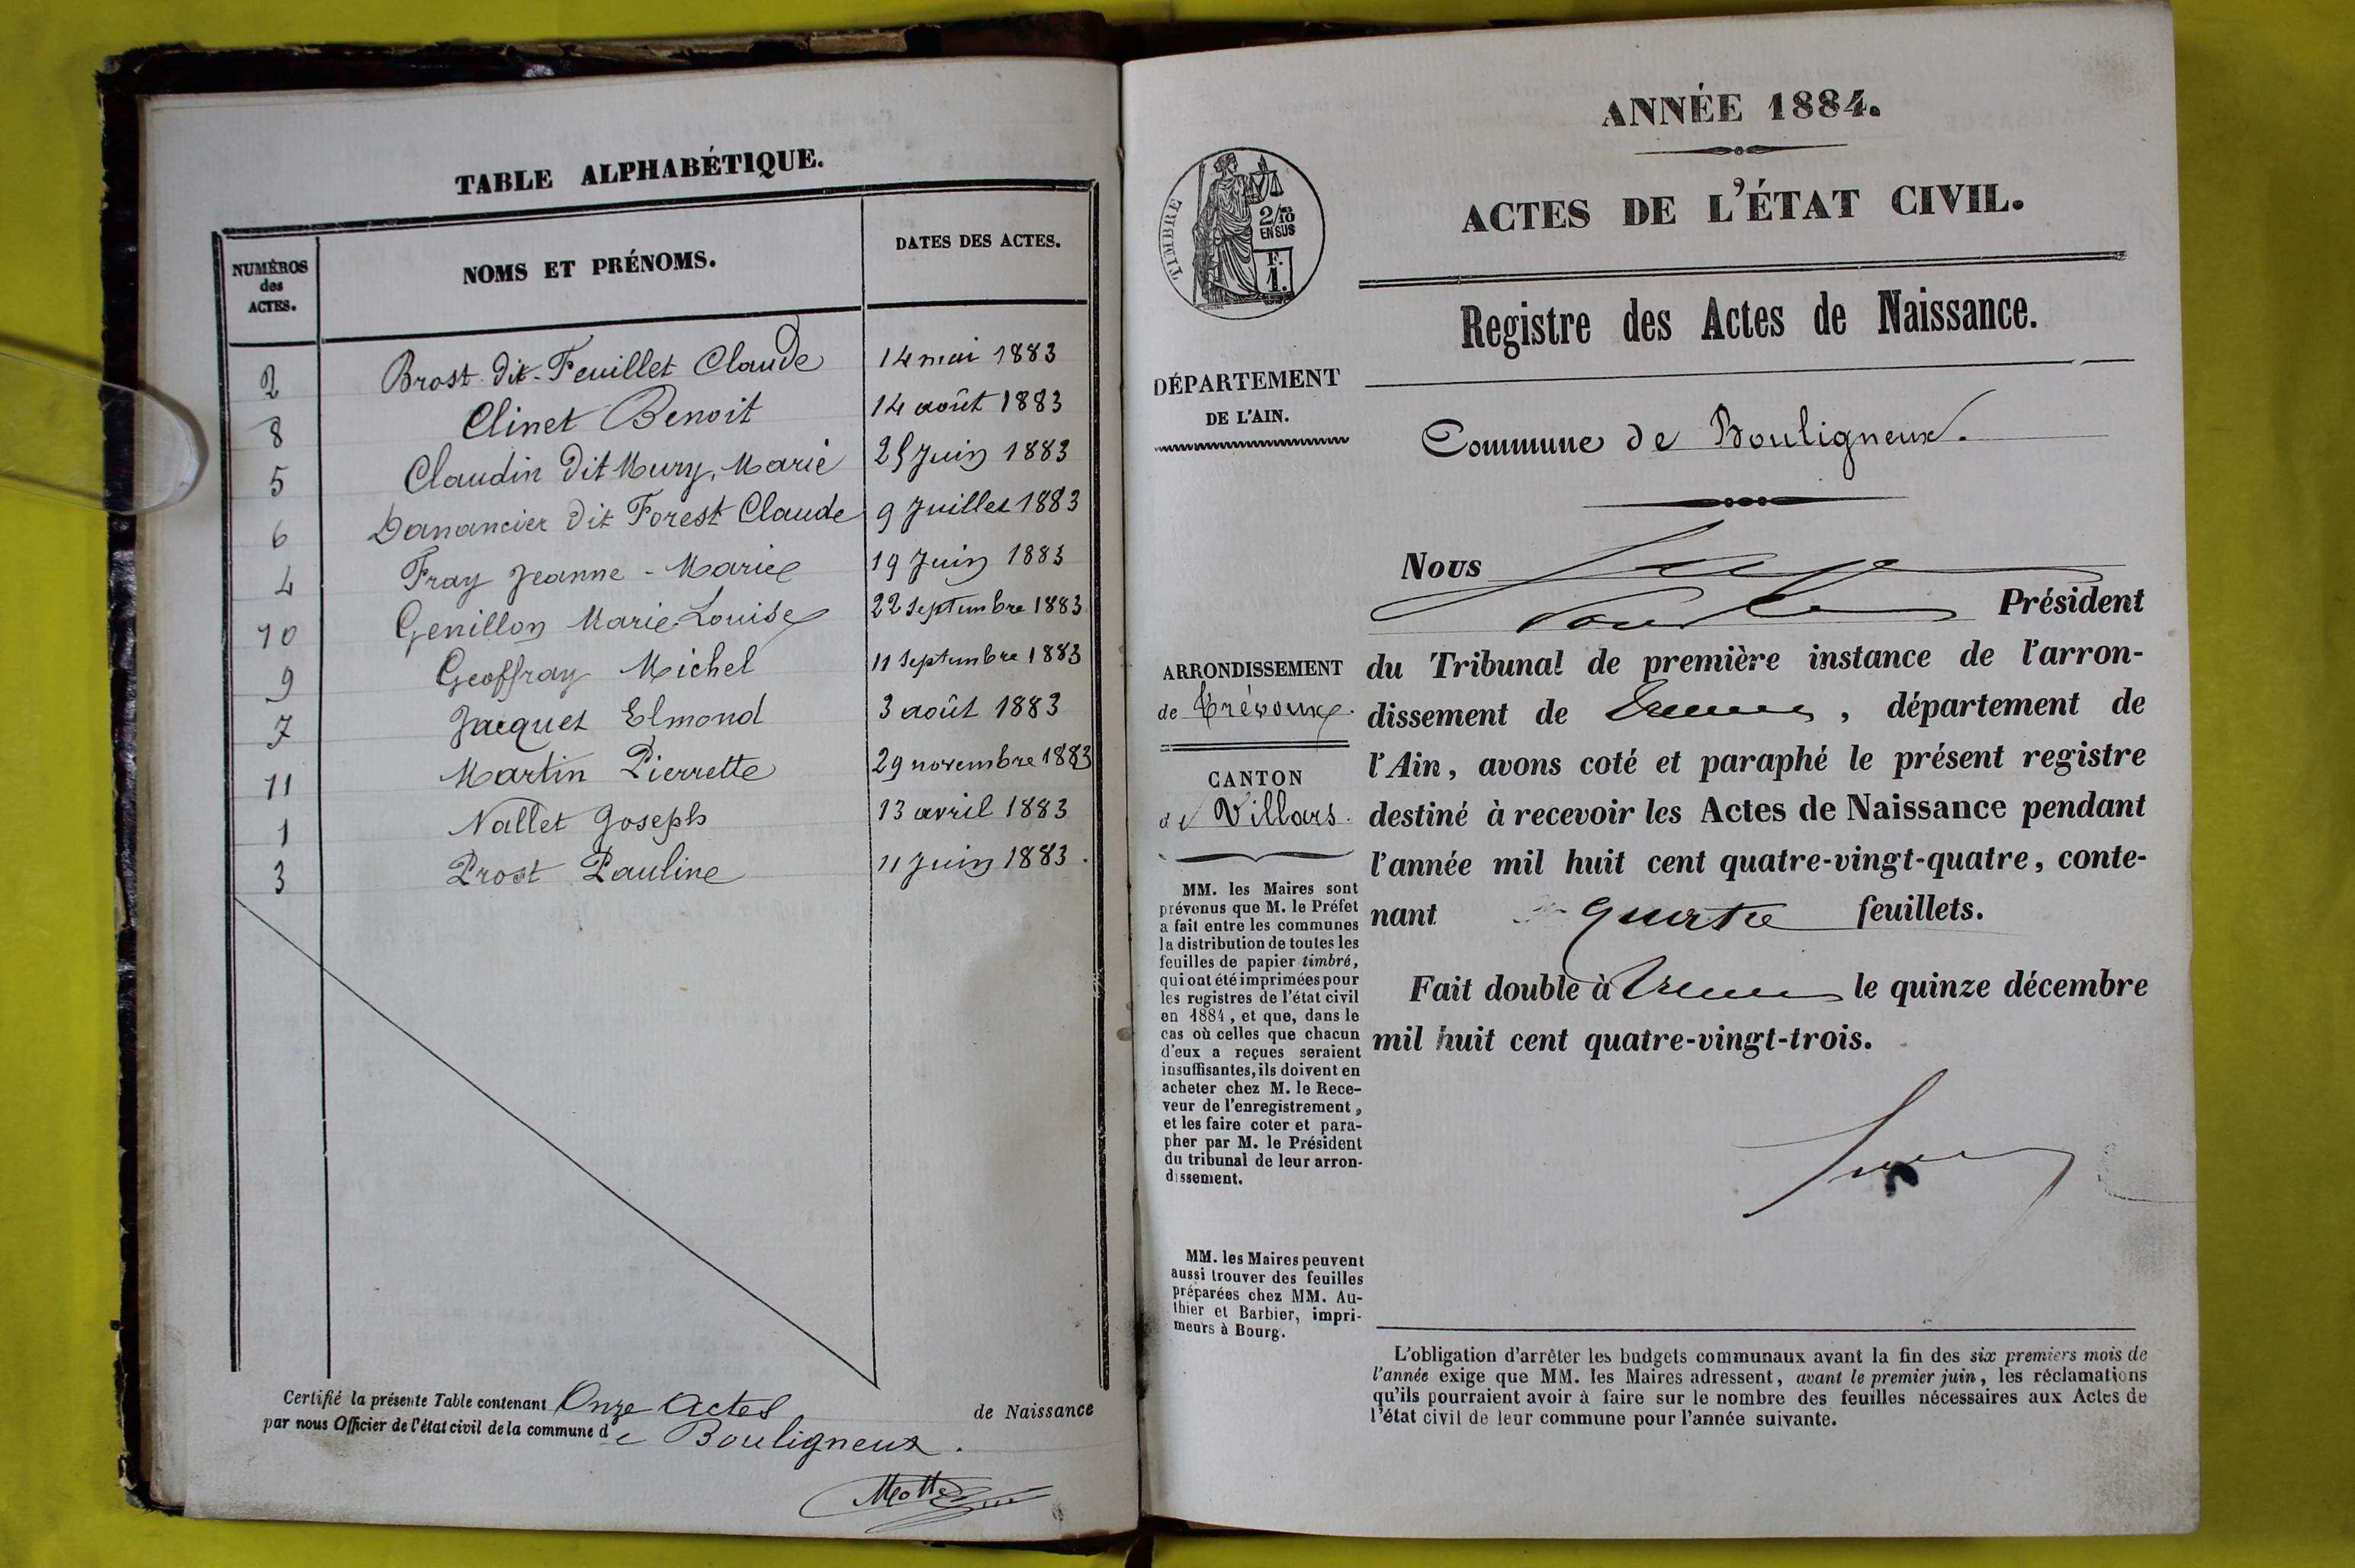 TABLE ALPHABÉTIQUE.
NUMÉROS
des
ACTES.
NOMS ET PRÉNOMS.
DATES DES ACTES.
2 Brost dit-Feuillet Claude 14 mai 1883
8 Clinet Benoit 14 août 1883
5 Claudin dit Mury, Marie 25 Juin 1883
6 Danancier dit Forest Claude 9 Juillet 1883
4 Fray Jeanne-Marie 19 Juin 1883
10 Genillon Marie-Louise 22 Septembre 1883
9 Geoffray Michel 11 Septembre 1883
7 Jacquet Elmond 3 août 1883
11 Martin Pierrette 29 novembre 1883
1 Nallet Joseph 13 avril 1883
3 Prost Pauline 11 Juin 1883.
Certifié la présente Table contenant Onze Actes de Naissance
par nous Officier de l'état civil de la commune de Bouligneux.
ANNÉE 1884.
ACTES DE L'ÉTAT CIVIL.
TIMBRE
2/10
EN SUS
F.
1.
Registre des Actes de Naissance.
DÉPARTEMENT
DE L'AIN.
Commune de Bouligneux.
Nous
Président
du Tribunal de première instance de l'arron-
dissement de , département de
l'Ain, avons coté et paraphé le présent registre
destiné à recevoir les Actes de Naissance pendant
l'année mil huit cent quatre-vingt-quatre, conte-
nant quatre feuillets.
Fait double à le quinze décembre
mil huit cent quatre-vingt-trois.
ARRONDISSEMENT
de Trévoux.
CANTON
de Villars.
MM. les Maires sont
prévenus que M. le Préfet
a fait entre les communes
la distribution de toutes les
feuilles de papier timbré,
qui ont été imprimées pour
les registres de l'état civil
en 1884, et que, dans le
cas où celles que chacun
d'eux a reçues seraient
insuffisantes, ils doivent en
acheter chez M. le Rece-
veur de l'enregistrement,
et les faire coter et para-
pher par M. le Président
du tribunal de leur arron-
dissement.
MM. les Maires peuvent
aussi trouver des feuilles
préparées chez MM. Au-
thier et Barbier, impri-
meurs à Bourg.
L'obligation d'arrêter les budgets communaux avant la fin des six premiers mois de
l'année exige que MM. les Maires adressent, avant le premier juin, les réclamations
qu'ils pourraient avoir à faire sur le nombre des feuilles nécessaires aux Actes de
l'état civil de leur commune pour l'année suivante.